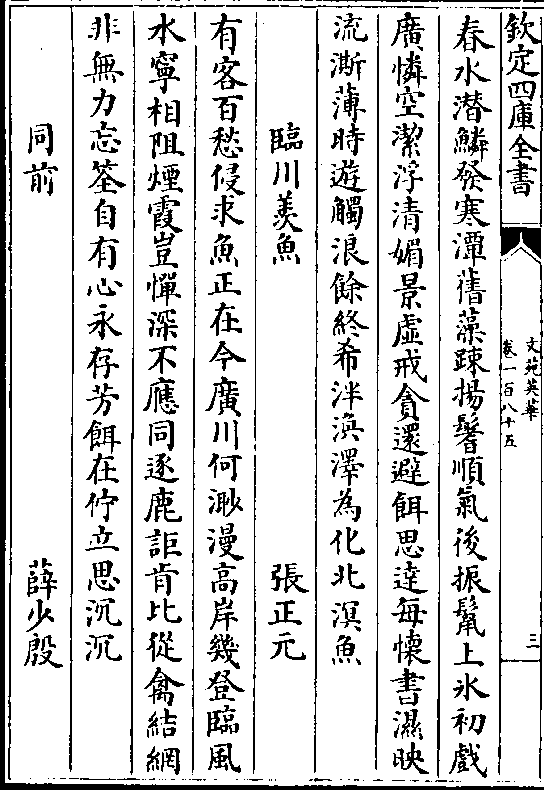 欽定四庫全書
文苑英華
卷一百八十五
三
春水潜鱗發寒潭舊藻踈揚鬐順氣後振鬛上氷初戲
廣憐空潔浮清媚景虛戒貪還避餌思逹每懐書濕映
流澌薄時遊觸浪餘終希泮渙澤為化北溟魚
臨川羡魚　張正元
有客百愁侵求魚正在今廣川何渺漫高岸幾登臨風
水寧相阻煙霞豈憚深不應同逐鹿詎肯比從禽結網
非無力忘筌自有心永存芳餌在佇立思沉沉
同前　薛少殷